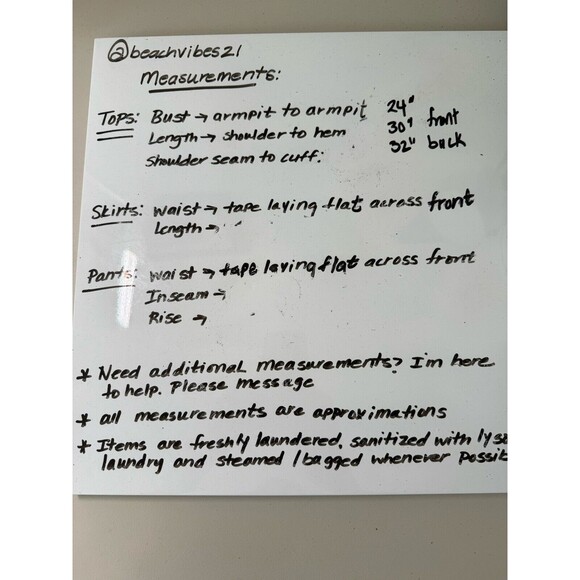 @beachvibes21
Measurements:
Tops: Bust → armpit to armpit 24"
Length → shoulder to hem 30" front
Shoulder seam to cuff: 32" back
Skirts: waist → tape laying flat across front
Length →
Pants: waist → tape laying flat across front
Inseam →
Rise →
* Need additional measurements? I'm here
to help. Please message
* all measurements are approximations
* Items are freshly laundered, sanitized with lys
laundry and steamed / bagged whenever possib